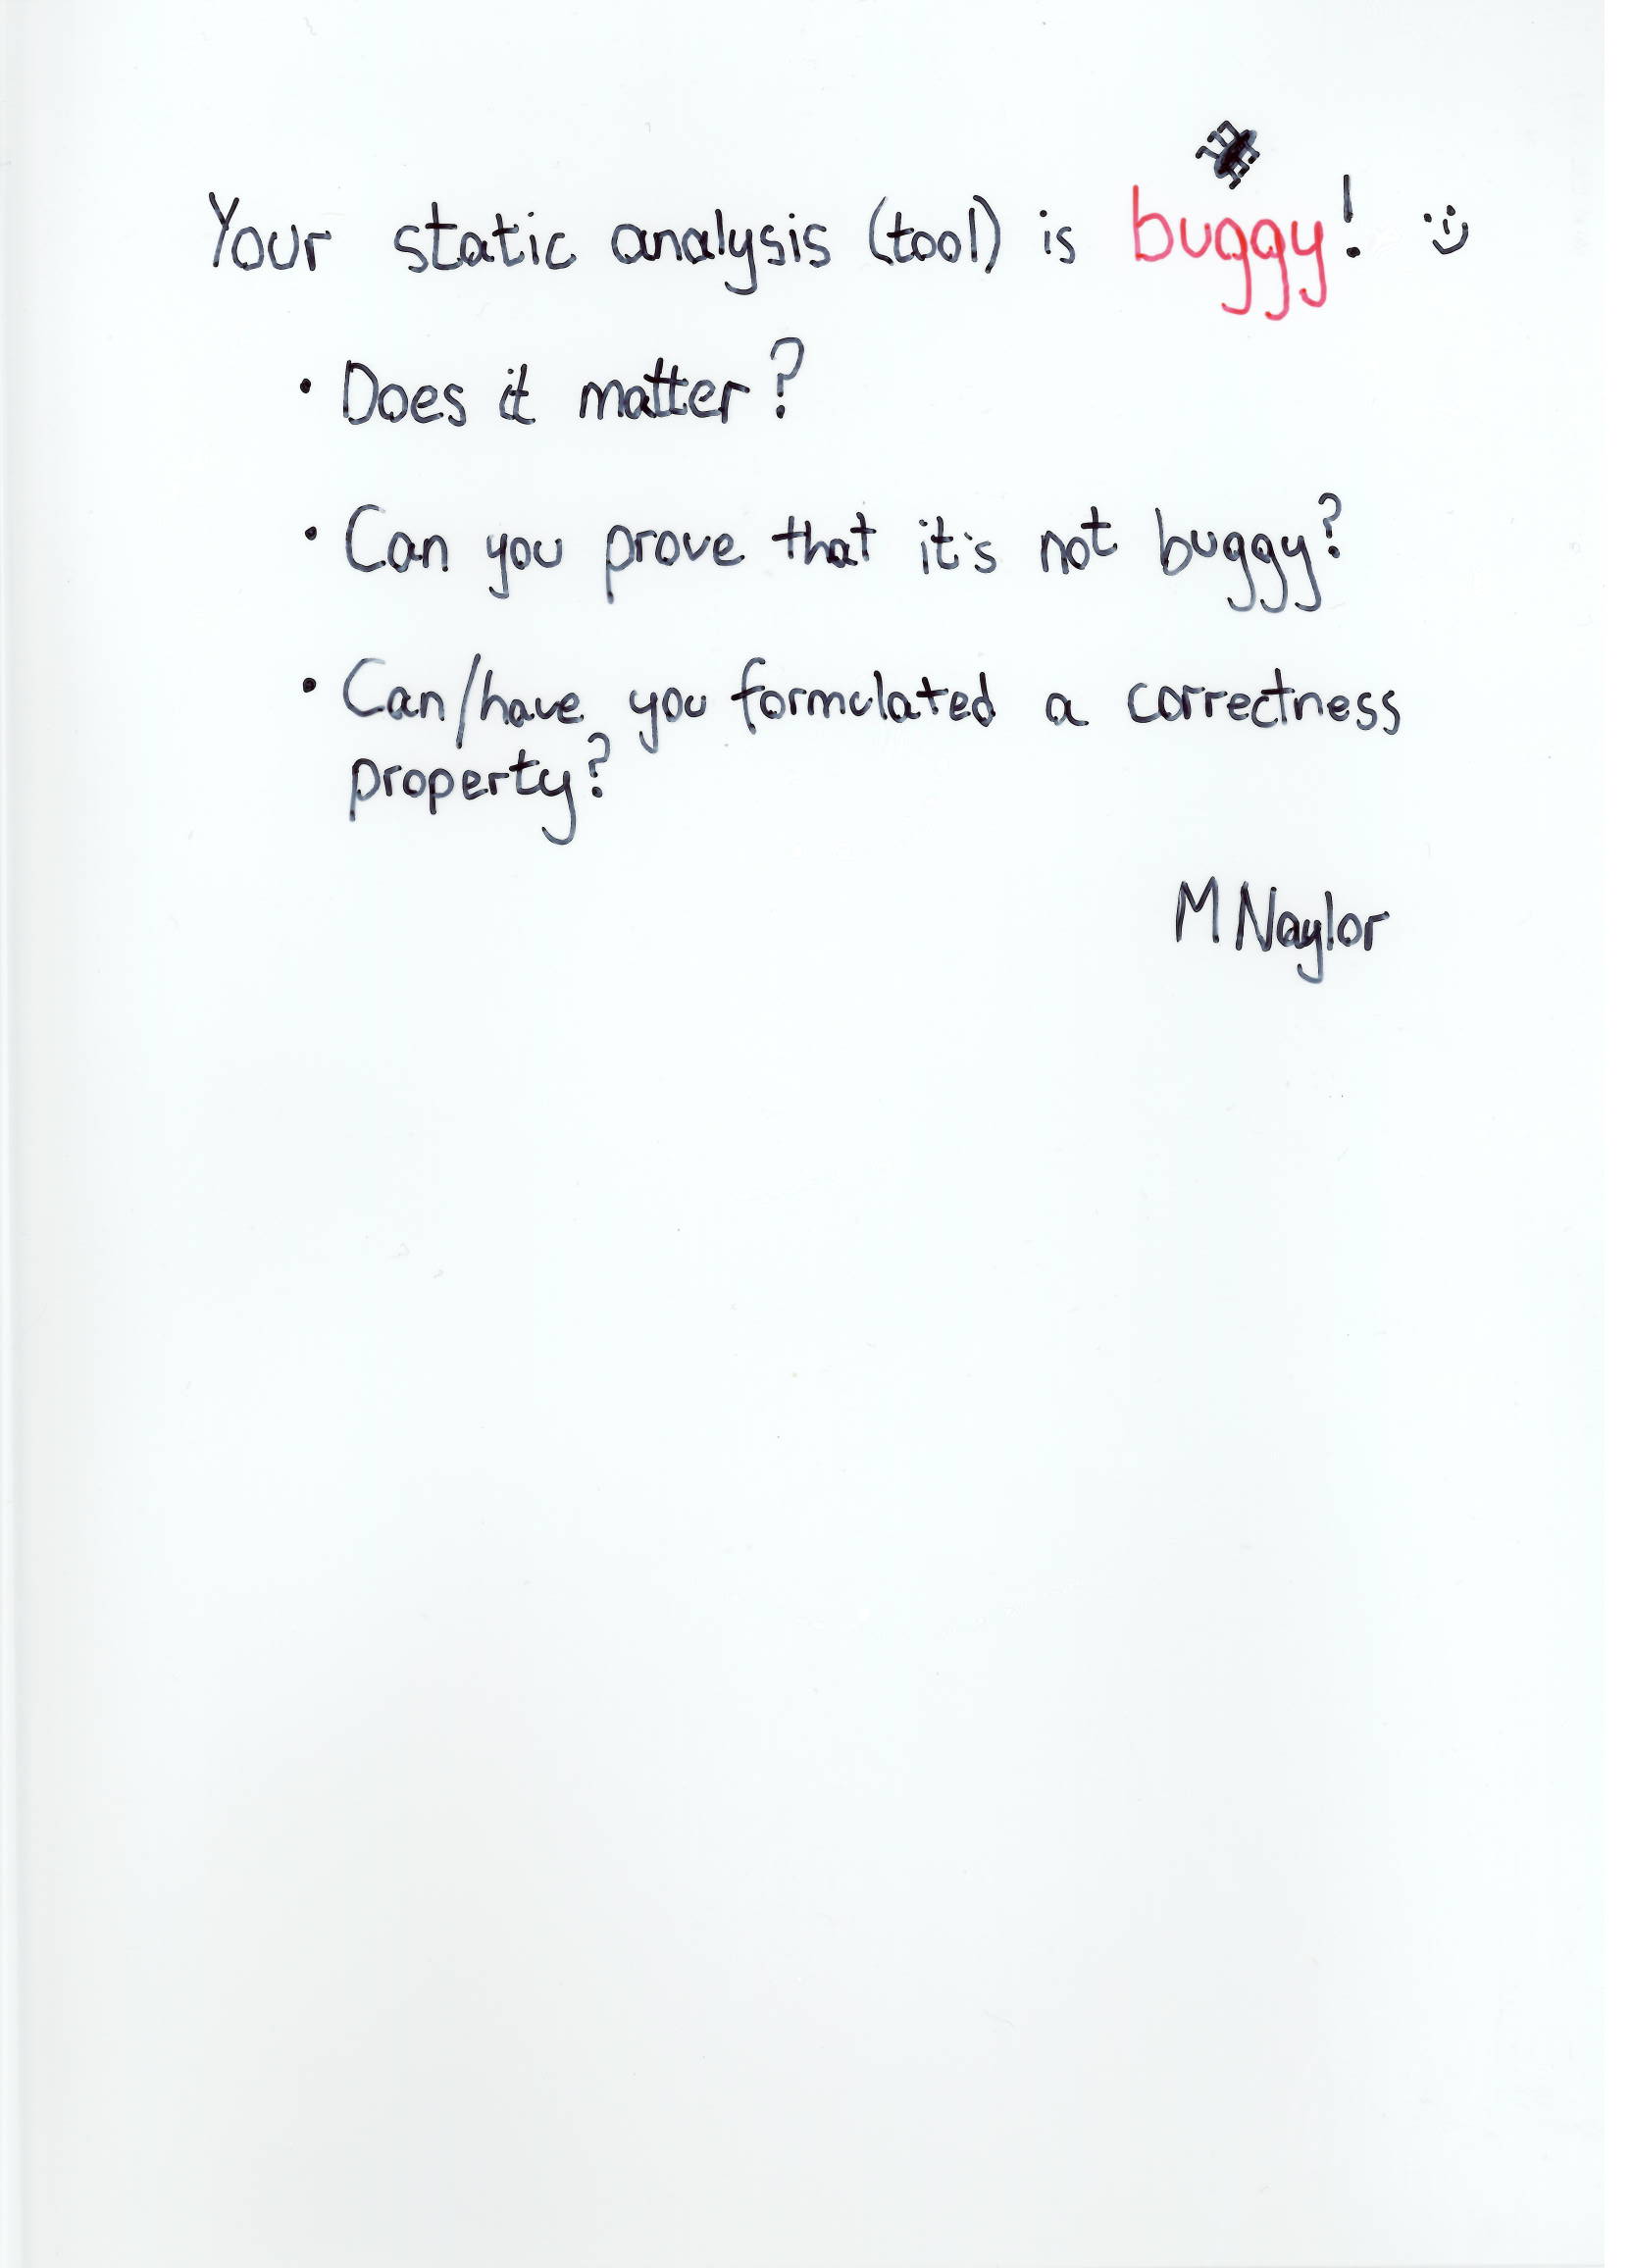 Your static analysis (tool) is buggy! :)
• Does it matter?
• Can you prove that it's not buggy?
• Can/have you formulated a correctness
property?
M Naylor